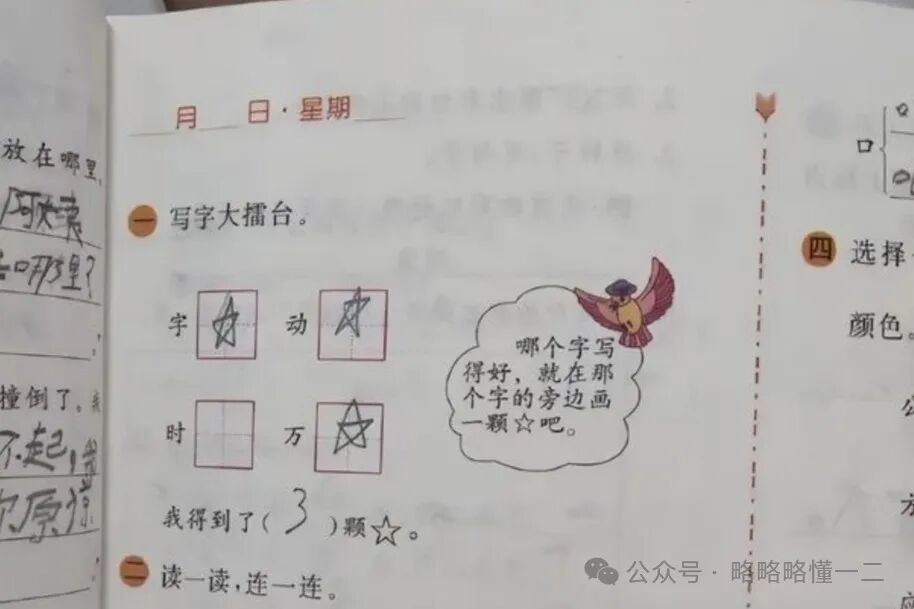 放在哪里
阿大袁
哪里?
撞倒了。我
不起,我
你原谅
月 日·星期
一 写字大擂台。
字 ☆ 动 ☆
时 万 ☆
哪个字写
得好,就在那
个字的旁边画
一颗☆吧。
我得到了( 3 )颗☆。
二 读一读,连一连。
口
四 选择
颜色。
公众号·略略略懂一二